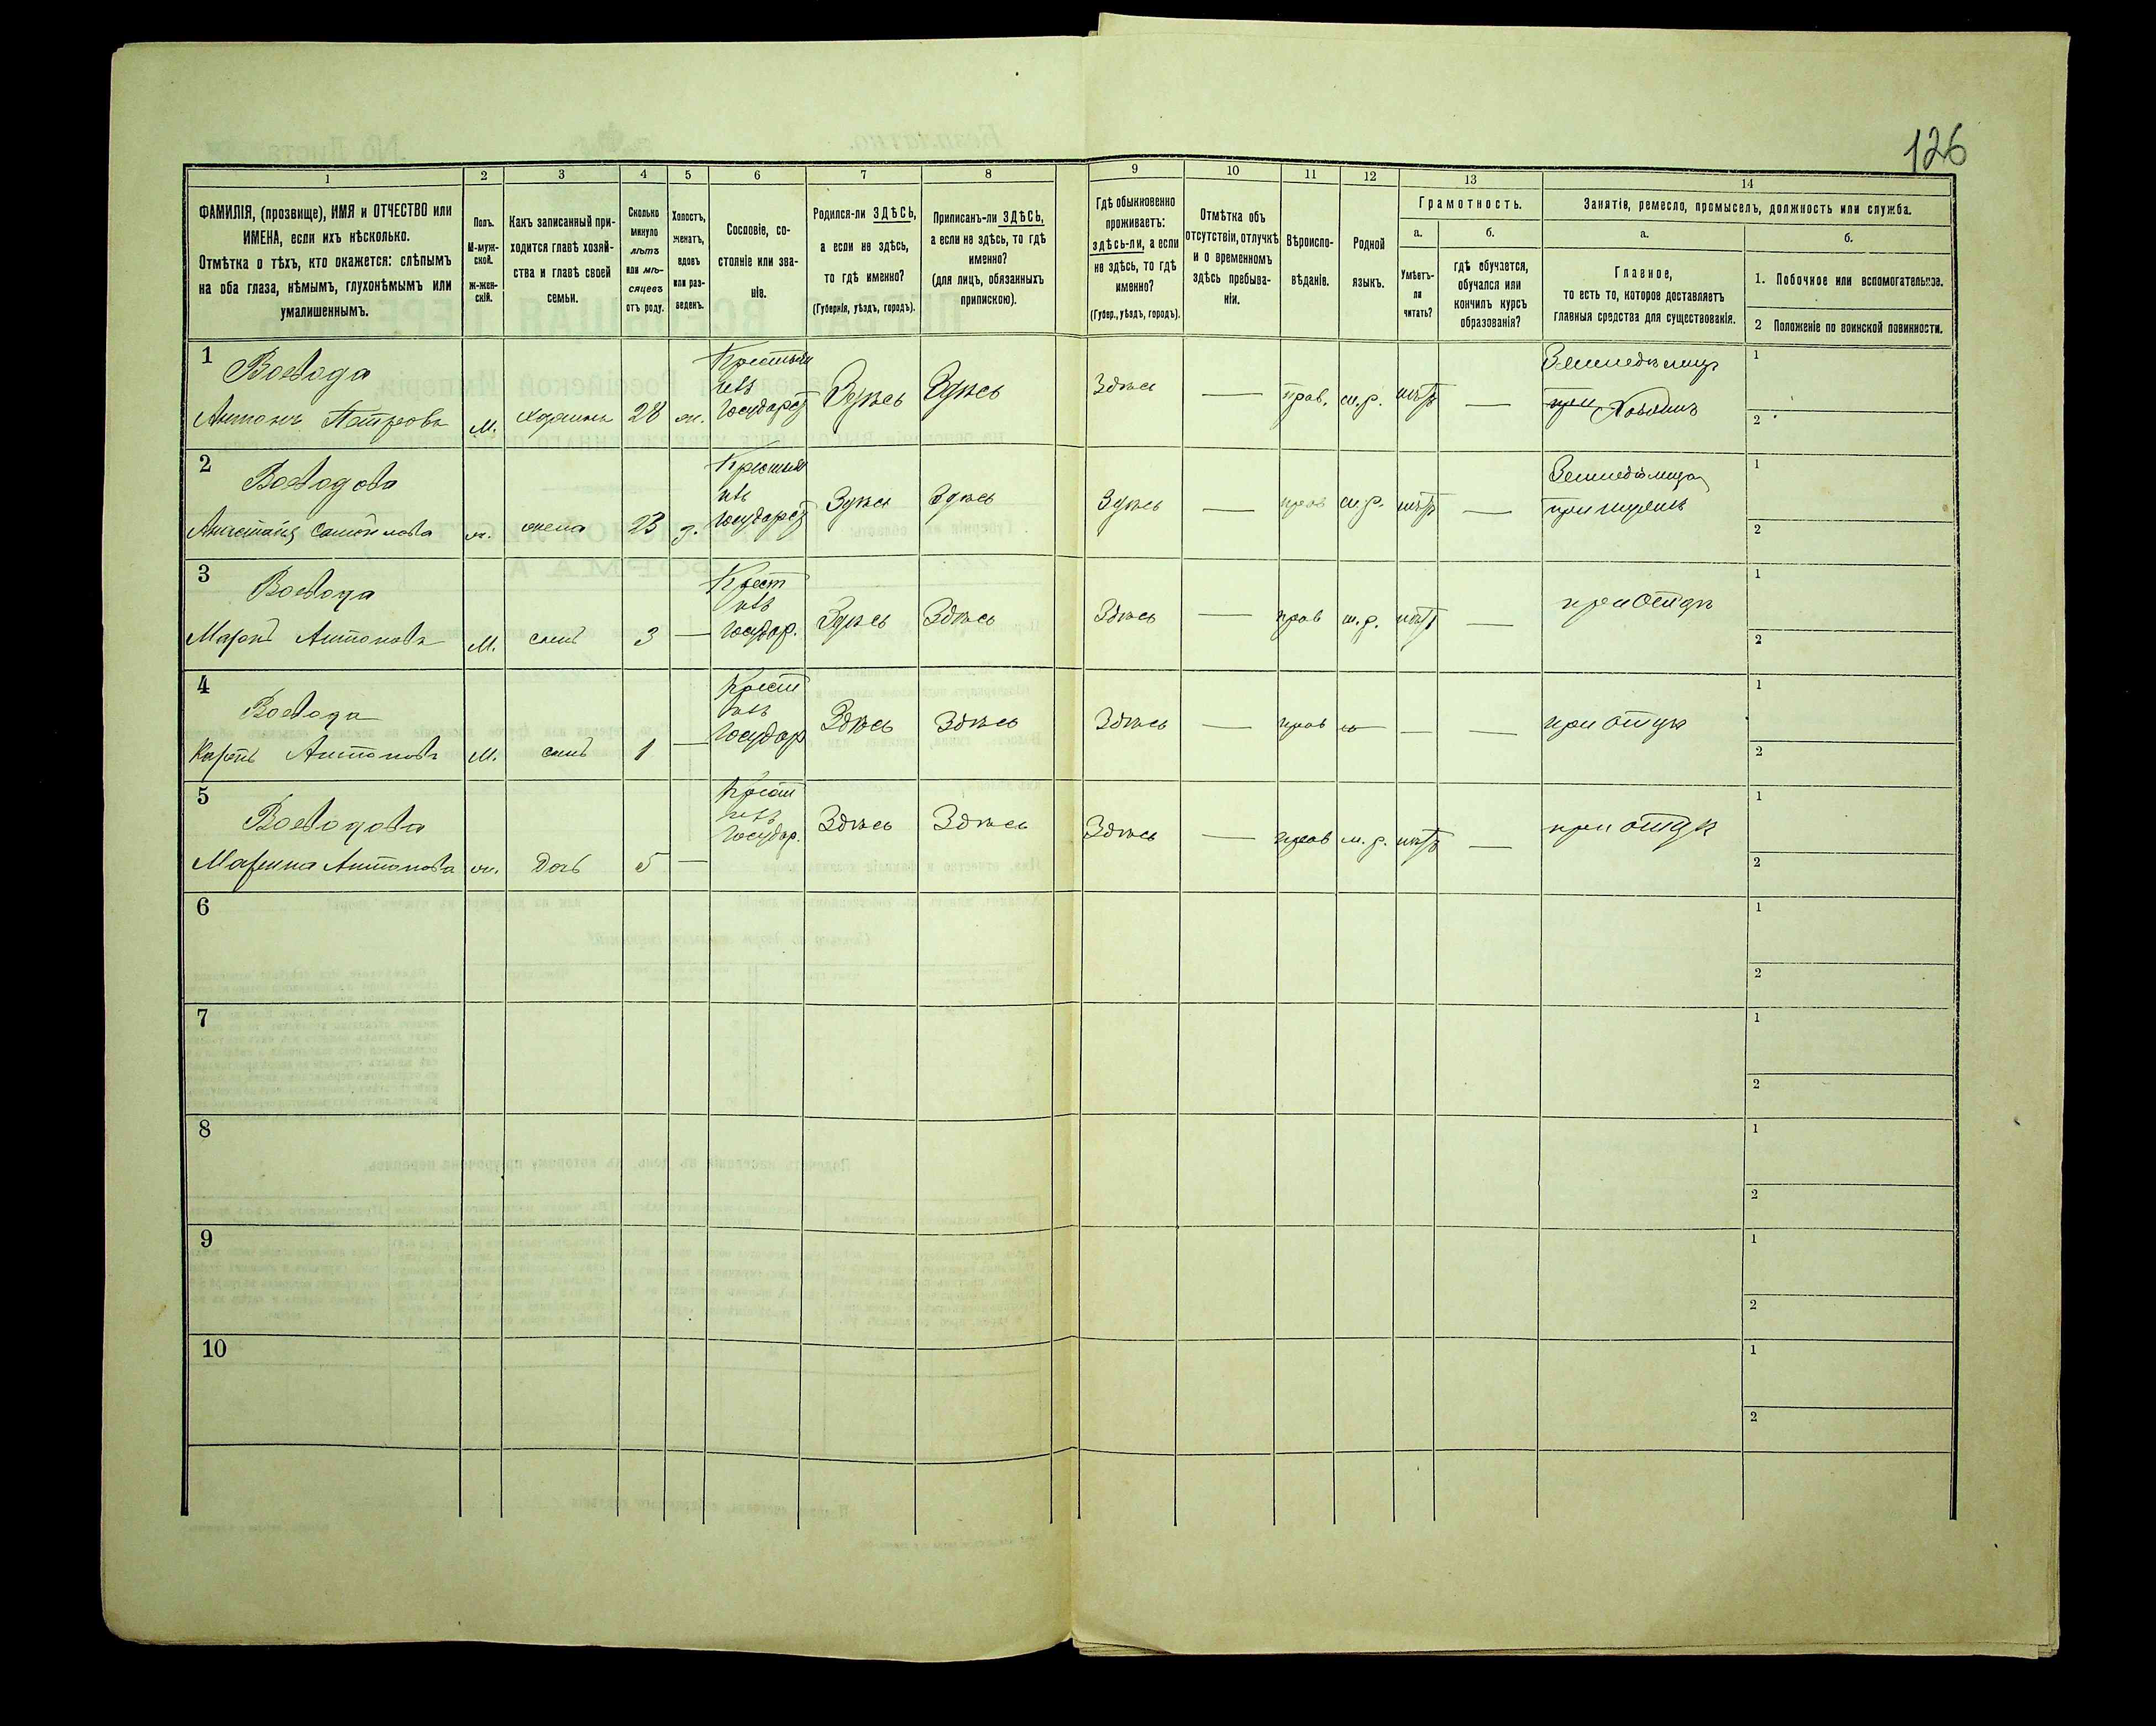 126
1 2 3 4 5 6 7 8 9 10 11 12 13 14
ФАМИЛІЯ, (прозвище), ИМЯ и ОТЧЕСТВО или
ИМЕНА, если ихъ нѣсколько.
Отмѣтка о тѣхъ, кто окажется: слѣпымъ
на оба глаза, нѣмымъ, глухонѣмымъ или
умалишеннымъ.
Полъ.
М-муж-
ской.
ж-жен-
скій.
Какъ записанный при-
ходится главѣ хозяй-
ства и главѣ своей
семьи.
Сколько
минуло
лѣтъ
или мѣ-
сяцевъ
отъ роду.
Холостъ,
женатъ,
вдовъ
или раз-
веденъ.
Сословіе, со-
стояніе или зва-
ніе.
Родился-ли ЗДѢСЬ,
а если не здѣсь,
то гдѣ именно?
(Губернія, уѣздъ, городъ).
Приписанъ-ли ЗДѢСЬ,
а если не здѣсь, то гдѣ
именно?
(для лицъ, обязанныхъ
припискою).
Гдѣ обыкновенно
проживаетъ:
здѣсь-ли, а если
не здѣсь, то гдѣ
именно?
(Губер., уѣздъ, городъ).
Отмѣтка объ
отсутствіи, отлучкѣ
и о временномъ
здѣсь пребыва-
ніи.
Вѣроиспо-
вѣданіе.
Родной
языкъ.
Грамотность.
а.
Умѣетъ-
ли
читать?
б.
гдѣ обучается,
обучался или
кончилъ курсъ
образованія?
Занятіе, ремесло, промыселъ, должность или служба.
а.
Главное,
то есть то, которое доставляетъ
главныя средства для существованія.
б.
1. Побочное или вспомогательное.
2 Положеніе по воинской повинности.
1 Воевода
Антонъ Петровъ
М.
хозяинъ
28
ж.
Крестьян
изъ
Государст
Здѣсь
Здѣсь
Здѣсь
—
прав.
м.р.
нѣтъ
—
при
1
2
2 Воеводова
Анастасія
ж.
жена
23
з.
Крестьян
изъ
Государст
Здѣсь
Здѣсь
Здѣсь
—
прав
м.р.
нѣтъ
—
при мужѣ
1
2
3 Воевода
Марко Антоновъ
М.
сынъ
3
—
Крест
изъ
Государ.
Здѣсь
Здѣсь
Здѣсь
—
прав
м.р.
нѣтъ
—
при отцѣ
1
2
4 Воевода
Карпъ Антоновъ
М.
сынъ
1
—
Крест
изъ
Государ
Здѣсь
Здѣсь
Здѣсь
—
прав
—
—
при отцѣ
1
2
5 Воеводова
Марина Антонова
ж.
дочь
5
—
Крест
изъ
Государ.
Здѣсь
Здѣсь
Здѣсь
—
прав
м.р.
нѣтъ
—
при отцѣ
1
2
6
1
2
7
1
2
8
1
2
9
1
2
10
1
2